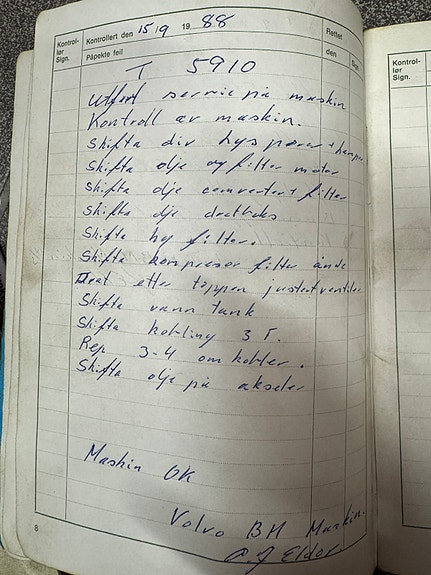 Kontrol-
lør
Sign.
Kontrollert den 15/9 1988
Påpekte feil
Rettet
den Sign.
T 5910
Utført servic på maskin
Kontroll av maskin.
Skifta div lys pærer + lamper
Skifta olje og filter motor
Skifta olje converter + filter
Skifta olje dreiboks
Skifta hy filter.
Skifta kompresor filter ånde
Drat etter toppen justert ventiler
Skifta vann tank
Skifta kobling 3 T.
Rep 3-4 om kobler.
Skifta olje på aksler
Maskin OK
Volvo BM Maskin.
8
Kontrol-
lør
Sign.